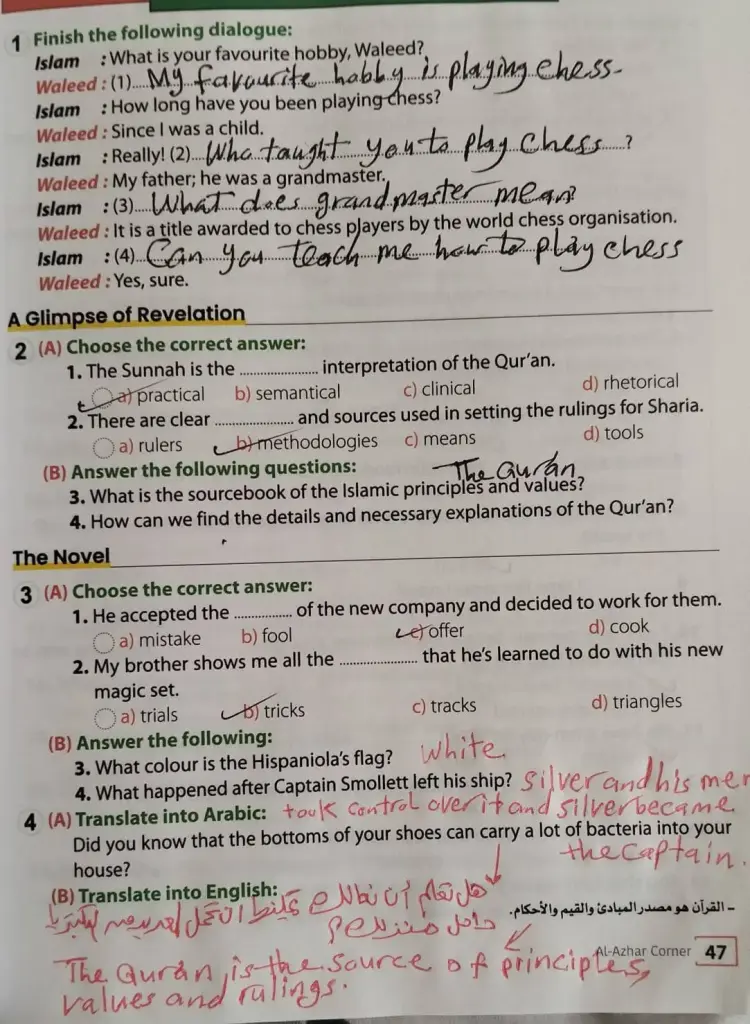 1 Finish the following dialogue:
Islam : What is your favourite hobby, Waleed?
Waleed : (1).... My favourite hobby is playing chess.
Islam : How long have you been playing chess?
Waleed : Since I was a child.
Islam : Really! (2).... Who taught you to play chess ....?
Waleed : My father; he was a grandmaster.
Islam : (3).... What does grandmaster mean?
Waleed : It is a title awarded to chess players by the world chess organisation.
Islam : (4).... Can you teach me how to play chess
Waleed : Yes, sure.
A Glimpse of Revelation
2 (A) Choose the correct answer:
1. The Sunnah is the .................... interpretation of the Qur'an.
a) practical b) semantical c) clinical d) rhetorical
2. There are clear .................... and sources used in setting the rulings for Sharia.
a) rulers b) methodologies c) means d) tools
(B) Answer the following questions:
The Qurán
3. What is the sourcebook of the Islamic principles and values?
4. How can we find the details and necessary explanations of the Qur'an?
The Novel
3 (A) Choose the correct answer:
1. He accepted the ............... of the new company and decided to work for them.
a) mistake b) fool c) offer d) cook
2. My brother shows me all the .................... that he's learned to do with his new
magic set.
a) trials b) tricks c) tracks d) triangles
(B) Answer the following:
3. What colour is the Hispaniola's flag? white
4. What happened after Captain Smollett left his ship? Silver and his men
4 (A) Translate into Arabic: took control over it and silver became
Did you know that the bottoms of your shoes can carry a lot of bacteria into your
house? the captain.
(B) Translate into English:
هل تعلم أن
– القرآن هو مصدر المبادئ والقيم والأحكام.
داخل منزلك؟
The Qurán is the source of principles,
values and rulings.
Al-Azhar Corner 47